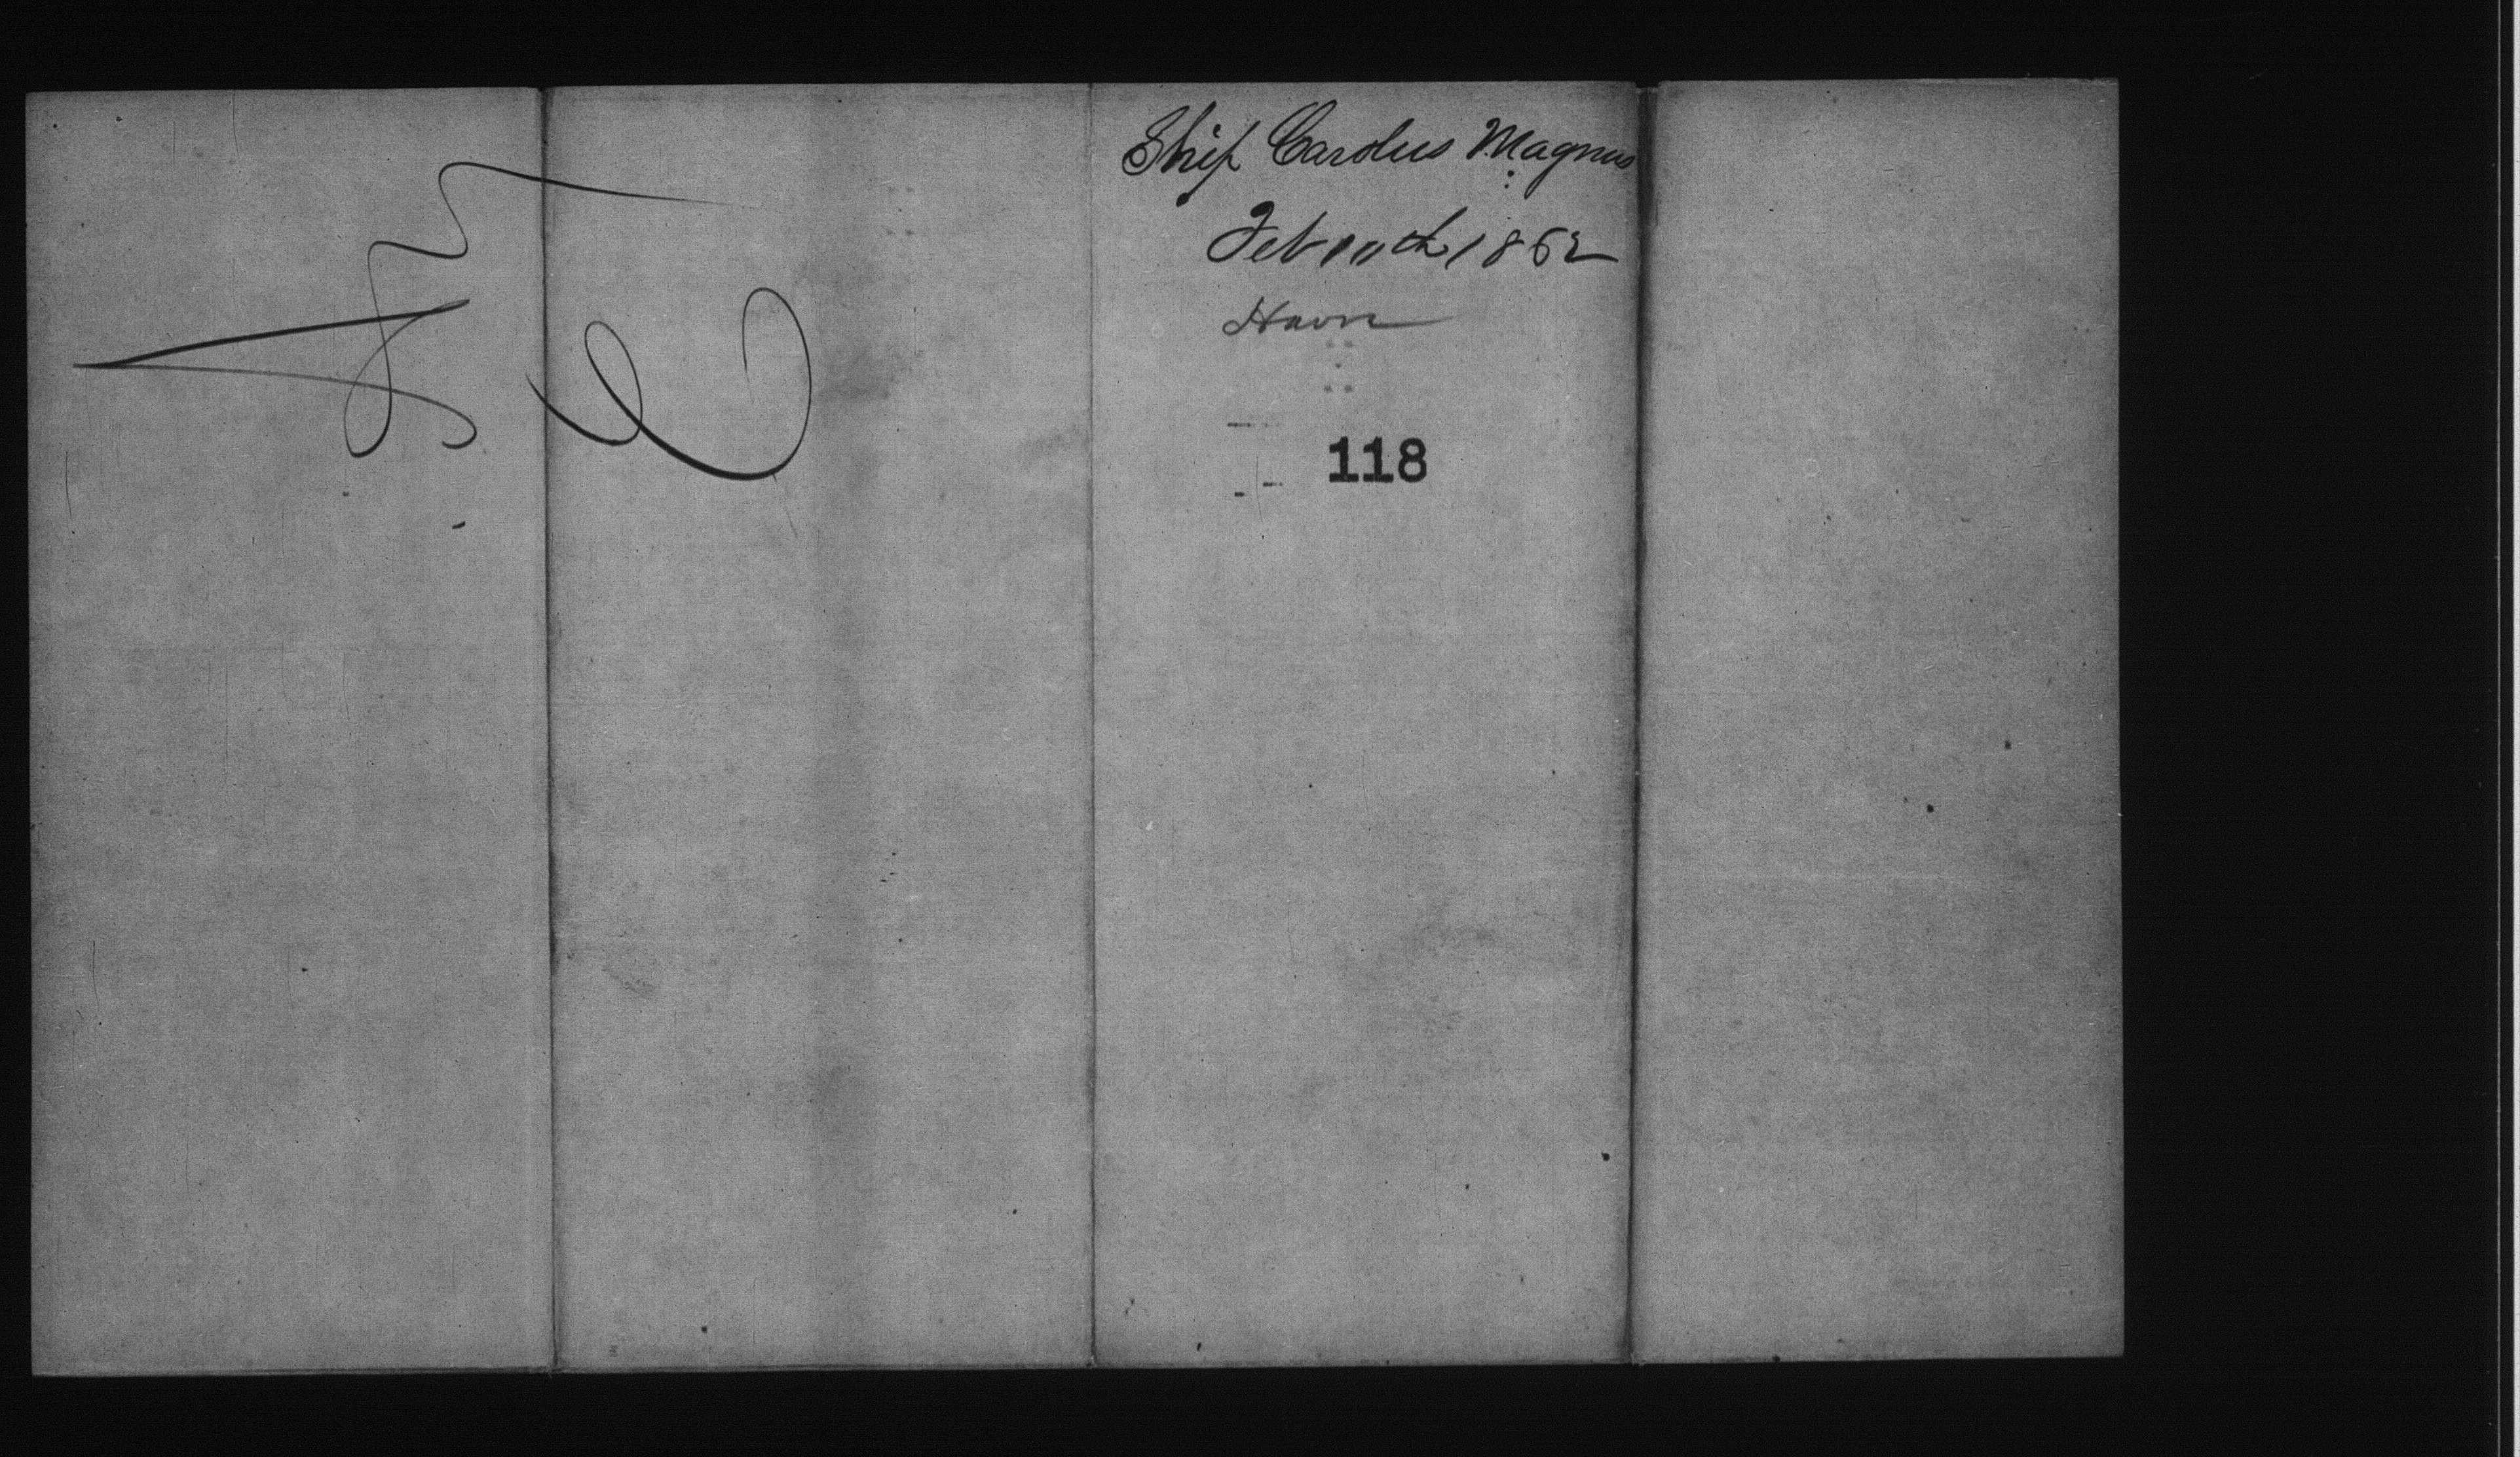 Ship Carolus Magnus
Feb 10th 1862
Havre
118